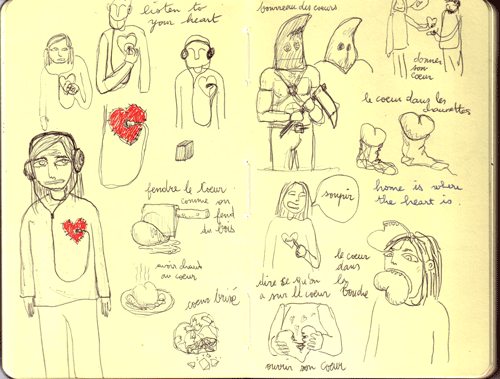 listen to
your heart
fendre le coeur
comme on
fend
du bois
avoir chaud
au coeur
coeur brisé
bourreau des coeurs
donner
son
coeur
le coeur dans les
chaussettes
home is where
the heart is.
soupir
dire ce qu'on
a sur le coeur
le coeur
dans
bouche
ouvrir son coeur